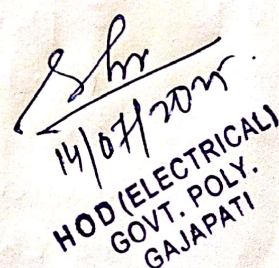 14/07/2025
HOD (ELECTRICAL)
GOVT. POLY.
GAJAPATI